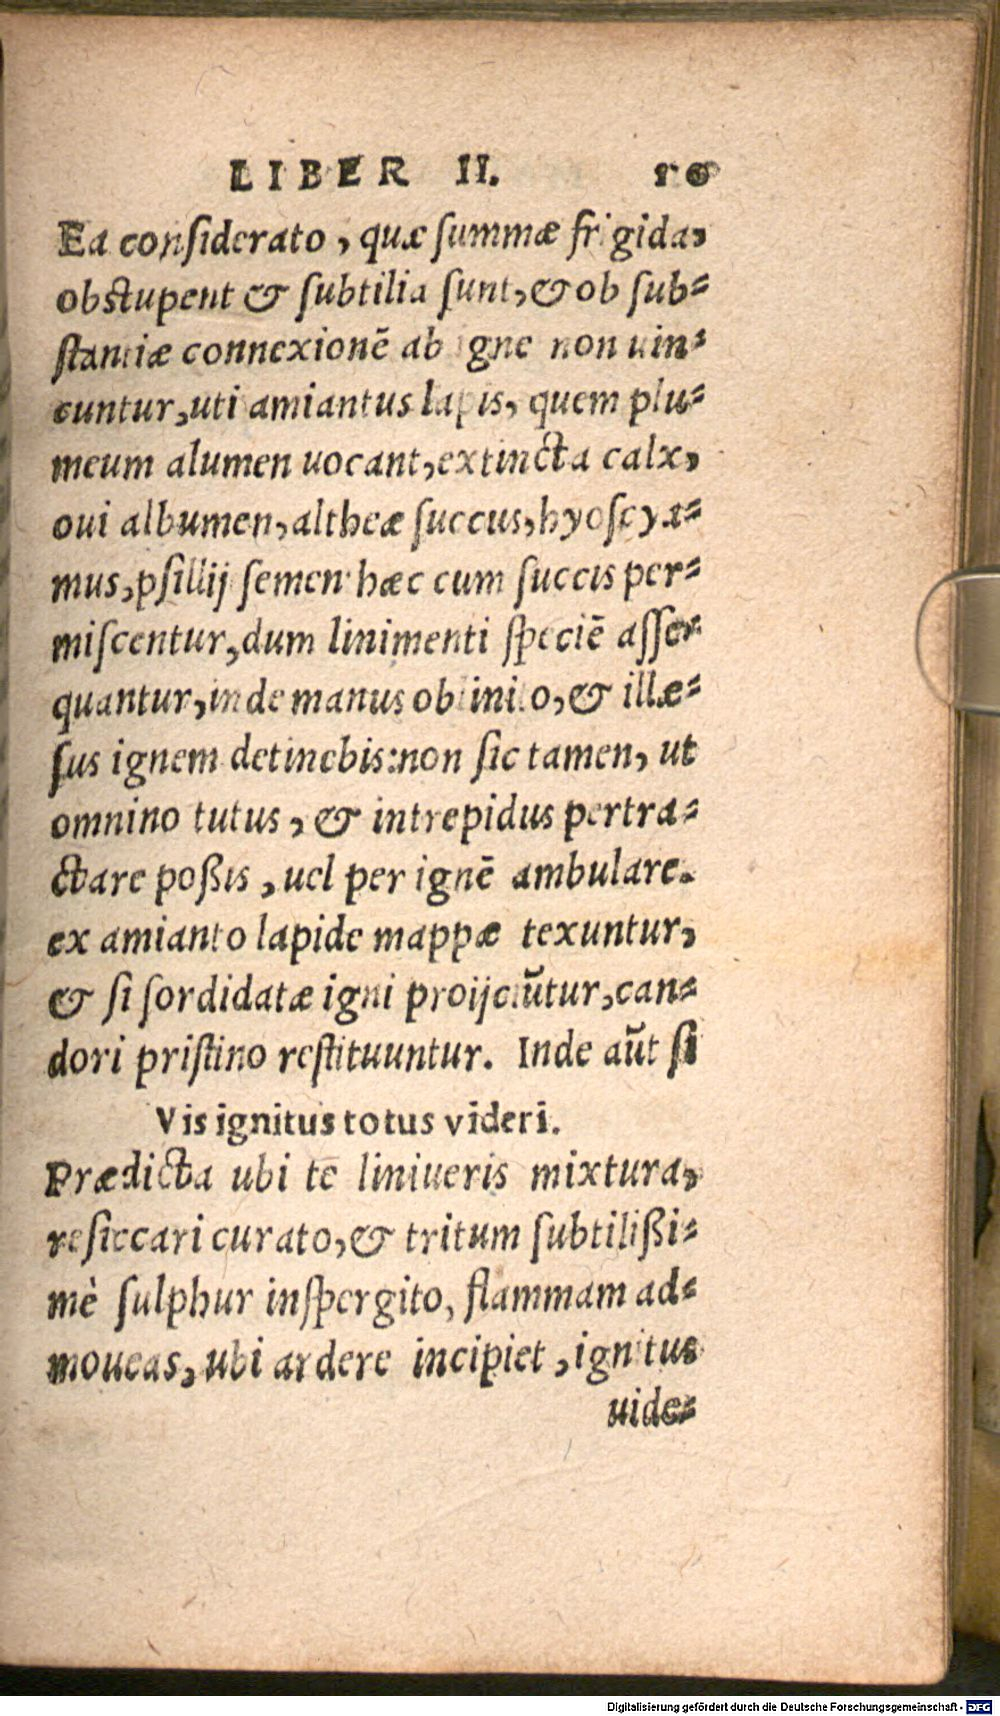 LIBER II. 50
Ea considerato, quæ summæ frigida,
obstupent & subtilia sunt, & ob sub-
stantiæ connexionē ab igne non uin-
cuntur, uti amiantus lapis, quem plu-
meum alumen uocant, extincta calx,
oui albumen, altheæ succus, hyoscya-
mus, psillij semen hæc cum succis per-
miscentur, dum linimenti speciē asse-
quantur, inde manus oblinito, & illæ-
sus ignem detinebis: non sic tamen, ut
omnino tutus, & intrepidus pertra-
ctare poßis, uel per ignē ambulare.
ex amianto lapide mappæ texuntur,
& si sordidatæ igni proijciūtur, can-
dori pristino restituuntur. Inde aūt si
Vis ignitus totus videri.
Prædicta ubi te liniueris mixtura,
resiccari curato, & tritum subtilißi-
mè sulphur inspergito, flammam ad-
moueas, ubi ardere incipiet, ignitus
uide-
Digitalisierung gefördert durch die Deutsche Forschungsgemeinschaft - DFG